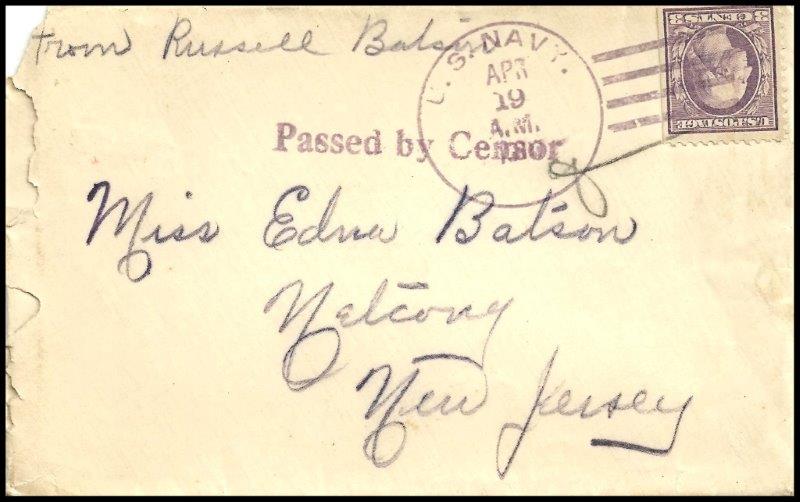 from Russell Batson
U.S. NAVY.
APR
19
A.M.
3 CENTS 3
U.S. POSTAGE
Passed by Censor
Miss Edna Batson
Netcong
New Jersey